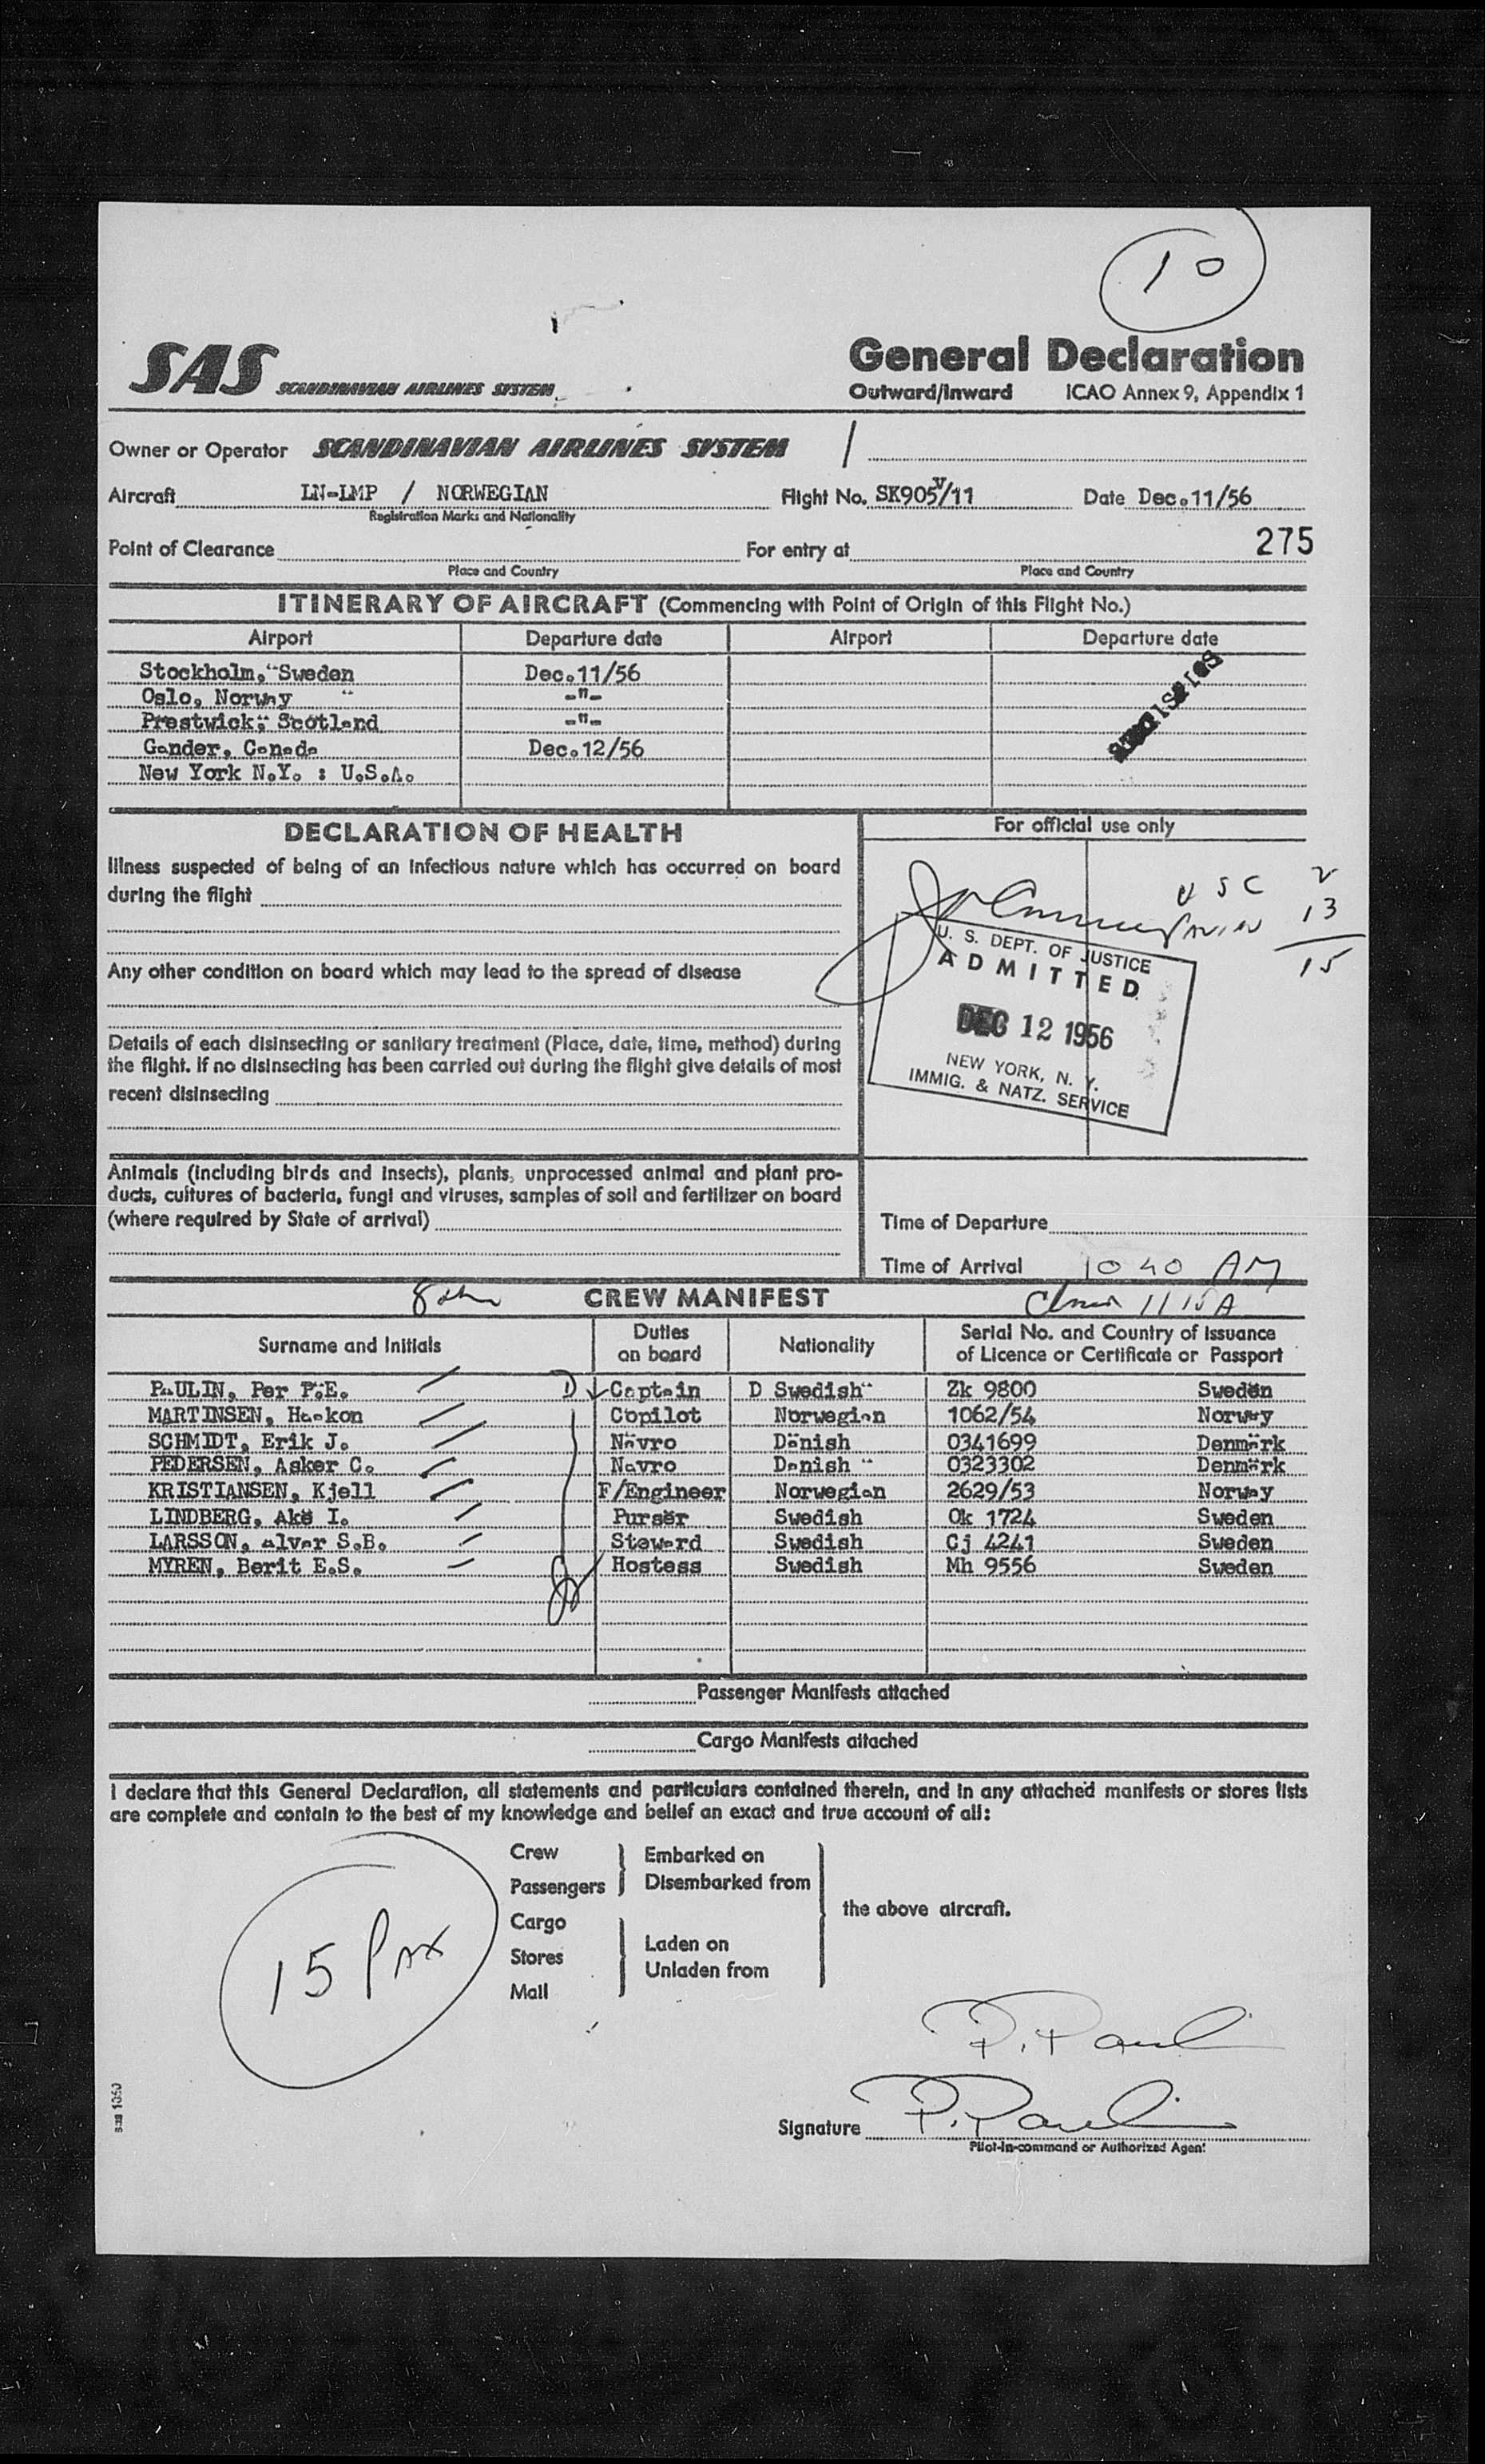 10
SAS SCANDINAVIAN AIRLINES SYSTEM
General Declaration
Outward/Inward ICAO Annex 9, Appendix 1
Owner or Operator SCANDINAVIAN AIRLINES SYSTEM /
Aircraft LN-LMP / NORWEGIAN Flight No. SK905/11 Date Dec.11/56
Registration Marks and Nationality
275
Point of Clearance For entry at
Place and Country Place and Country
ITINERARY OF AIRCRAFT (Commencing with Point of Origin of this Flight No.)
Airport Departure date Airport Departure date
Stockholm, Sweden Dec.11/56
Oslo, Norway -"-
Prestwick, Scotland -"-
Gander, Canada Dec.12/56
New York N.Y. : U.S.A.
DECLARATION OF HEALTH
For official use only
Illness suspected of being of an infectious nature which has occurred on board
during the flight
USC 2
13
15
Any other condition on board which may lead to the spread of disease
U. S. DEPT. OF JUSTICE
ADMITTED
DEC 12 1956
NEW YORK, N. Y.
IMMIG. & NATZ. SERVICE
Details of each disinsecting or sanitary treatment (Place, date, time, method) during
the flight. If no disinsecting has been carried out during the flight give details of most
recent disinsecting
Animals (including birds and insects), plants, unprocessed animal and plant pro-
ducts, cultures of bacteria, fungi and viruses, samples of soil and fertilizer on board
(where required by State of arrival)
Time of Departure
Time of Arrival 10 40 AM
CREW MANIFEST
11 15 A
Surname and Initials Duties on board Nationality Serial No. and Country of Issuance of Licence or Certificate or Passport
PAULIN, Per P.E. D Captain D Swedish Zk 9800 Sweden
MARTINSEN, Haakon Copilot Norwegian 1062/54 Norway
SCHMIDT, Erik J. Navro Danish 0341699 Denmark
PEDERSEN, Asker C. Navro Danish 0323302 Denmark
KRISTIANSEN, Kjell F/Engineer Norwegian 2629/53 Norway
LINDBERG, Ake I. Purser Swedish Ok 1724 Sweden
LARSSON, Alvar S.B. Steward Swedish Cj 4241 Sweden
MYREN, Berit E.S. Hostess Swedish Mh 9556 Sweden
Passenger Manifests attached
Cargo Manifests attached
I declare that this General Declaration, all statements and particulars contained therein, and in any attached manifests or stores lists
are complete and contain to the best of my knowledge and belief an exact and true account of all:
Crew Embarked on
Passengers Disembarked from
the above aircraft.
Cargo
Stores Laden on
Unladen from
Mail
15 PAX
P. Paulin
Signature P. Paulin
Pilot-in-command or Authorized Agent